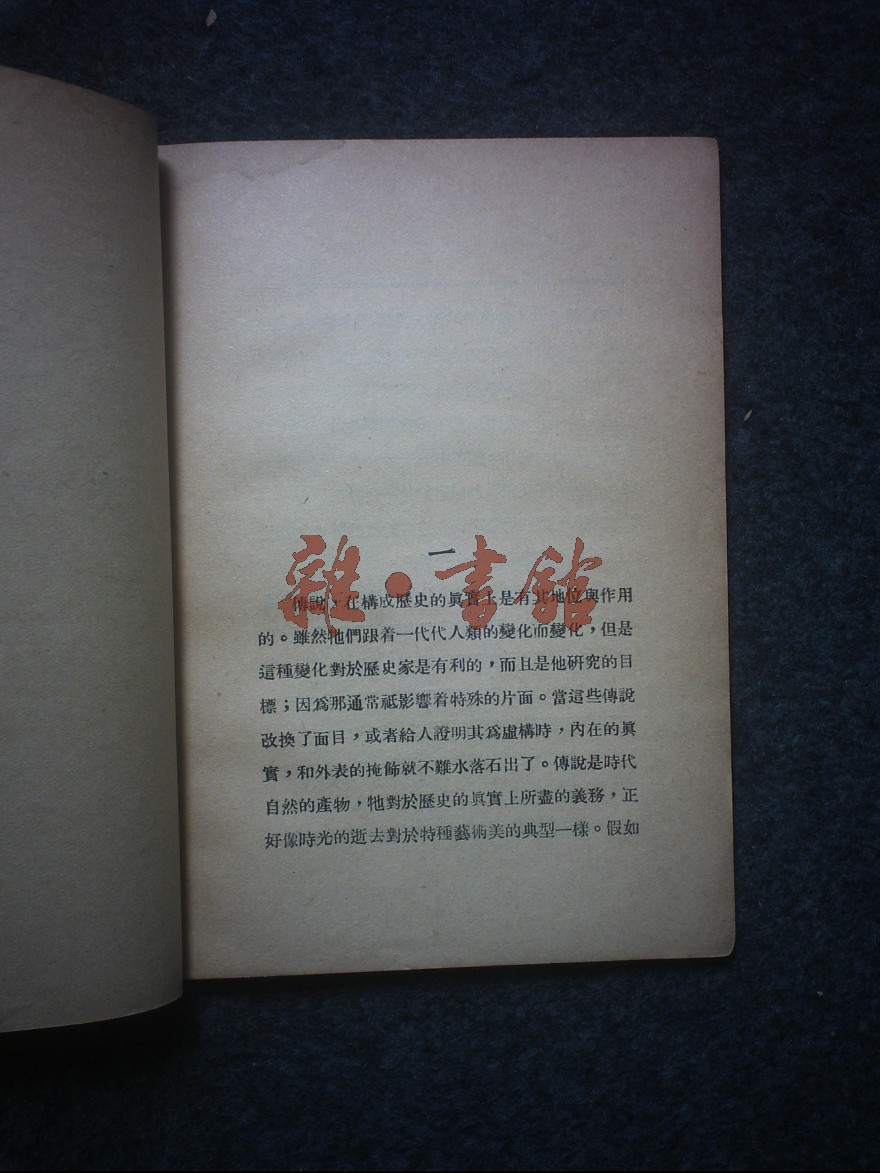 一
雜·書館
傳說，在構成歷史的眞實上是有其地位與作用
的。雖然牠們跟着一代代人類的變化而變化，但是
這種變化對於歷史家是有利的，而且是他硏究的目
標；因爲那通常祇影響着特殊的片面。當這些傳說
改換了面目，或者給人證明其爲虛構時，內在的眞
實，和外表的掩飾就不難水落石出了。傳說是時代
自然的產物，牠對於歷史的眞實上所盡的義務，正
好像時光的逝去對於特種藝術美的典型一樣。假如